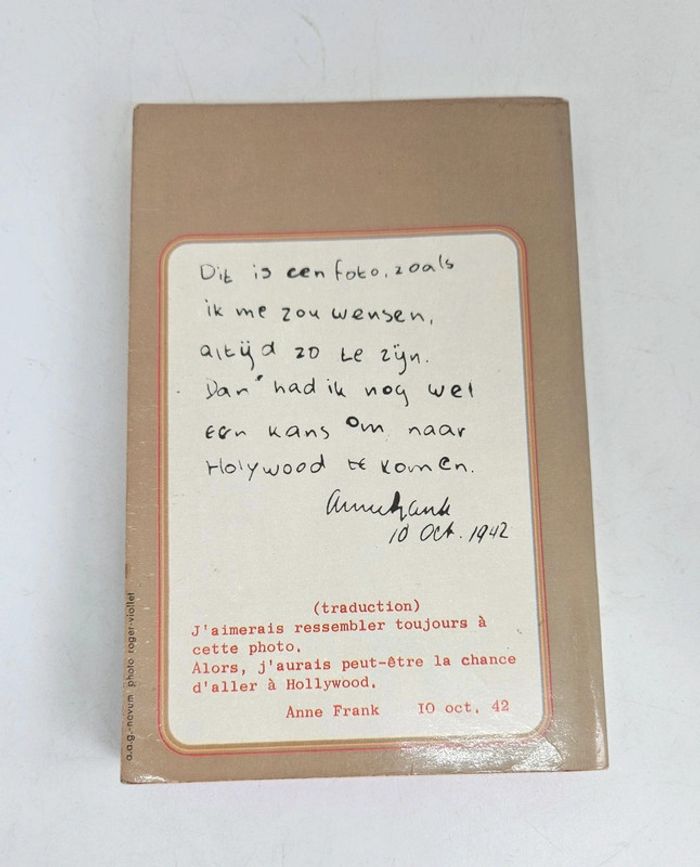 Dit is een foto, zoals
ik me zou wensen,
altijd zo te zijn.
Dan had ik nog wel
een kans om naar
Holywood te komen.
Annefrank
10 Oct. 1942
(traduction)
J'aimerais ressembler toujours à
cette photo.
Alors, j'aurais peut-être la chance
d'aller à Hollywood.
Anne Frank IO oct. 42
a.a.g.-novum photo roger-viollet